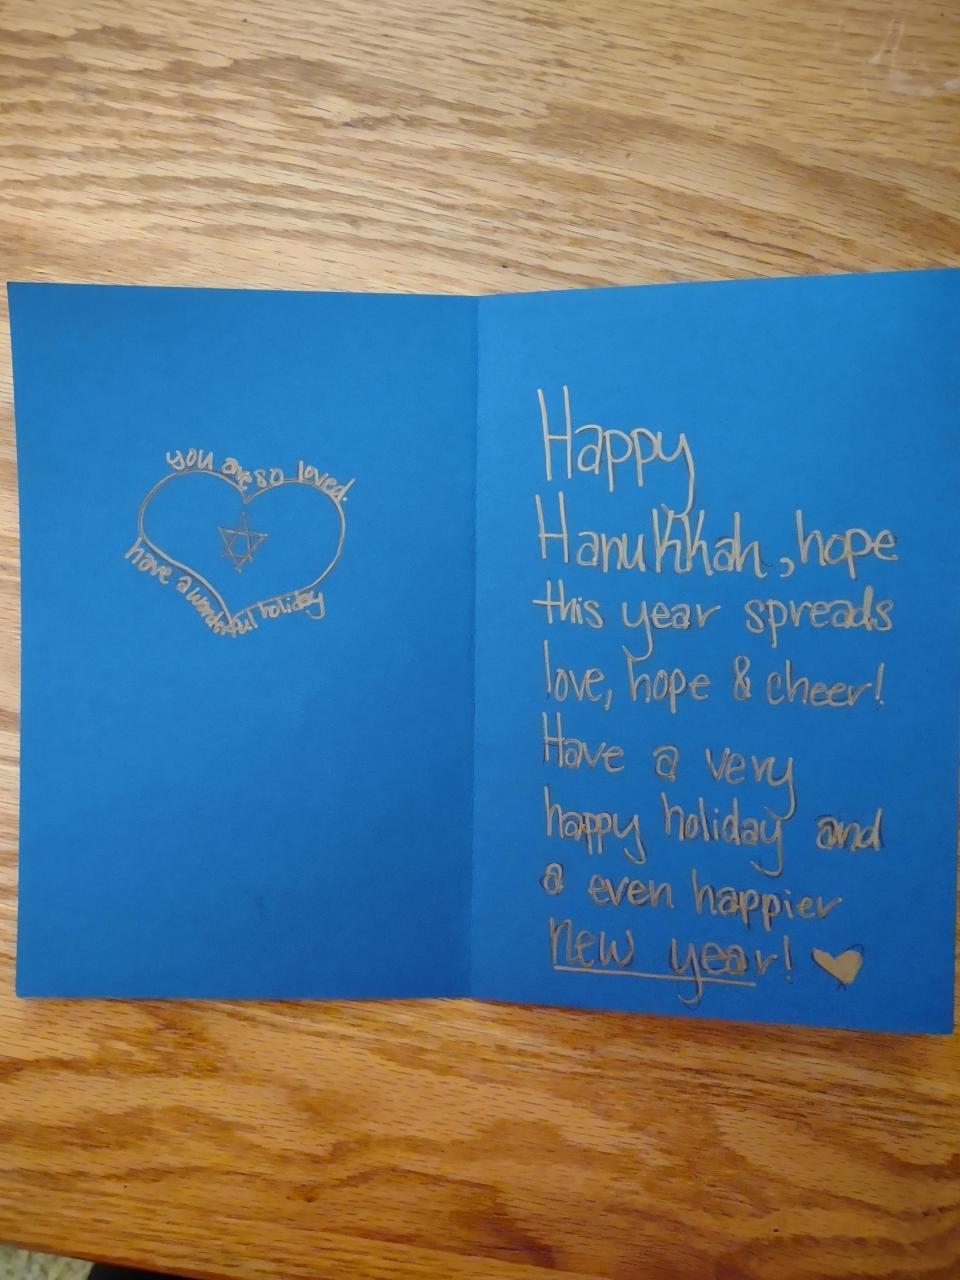 you are so loved.
have a wonderful holiday
Happy
Hanukkah, hope
this year spreads
love, hope & cheer!
Have a very
happy holiday and
a even happier
new year!